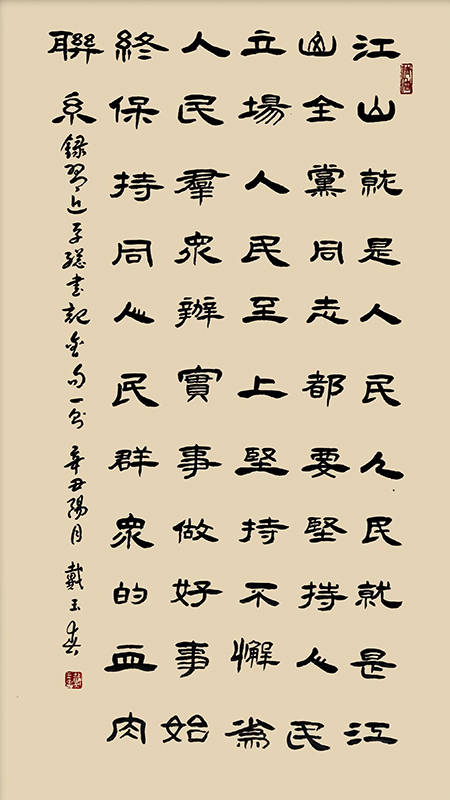 江山就是人民人民就是江
山全黨同志都要堅持人民
立場人民至上堅持不懈為
人民羣眾辦實事做好事始
終保持同人民群眾的血肉
聯系 錄習近平總書記金句一則 辛丑陽月 戴玉春